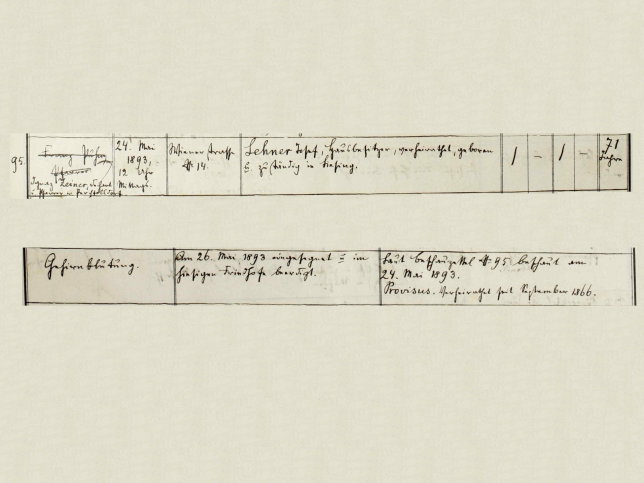 95.
Franz Huber
Pfarrer
Ignaz Zeiner, Dechant
u. Pfarrer in Perchtoldsdorf
24. Mai
1893,
12 Uhr
Mittags.
Wienerstrasse
№ 14.
Lehner Josef, Hausbesitzer, verheirathet, geboren
& zuständig in Liesing.
1
-
1
-
71
Jahre
Gehirnblutung.
Am 26. Mai 1893 eingesegnet & im
hiesigen Friedhofe beerdigt.
Laut Beschauzettel № 95 beschaut am
24. Mai 1893.
Provisus. Verheirathet seit September 1866.